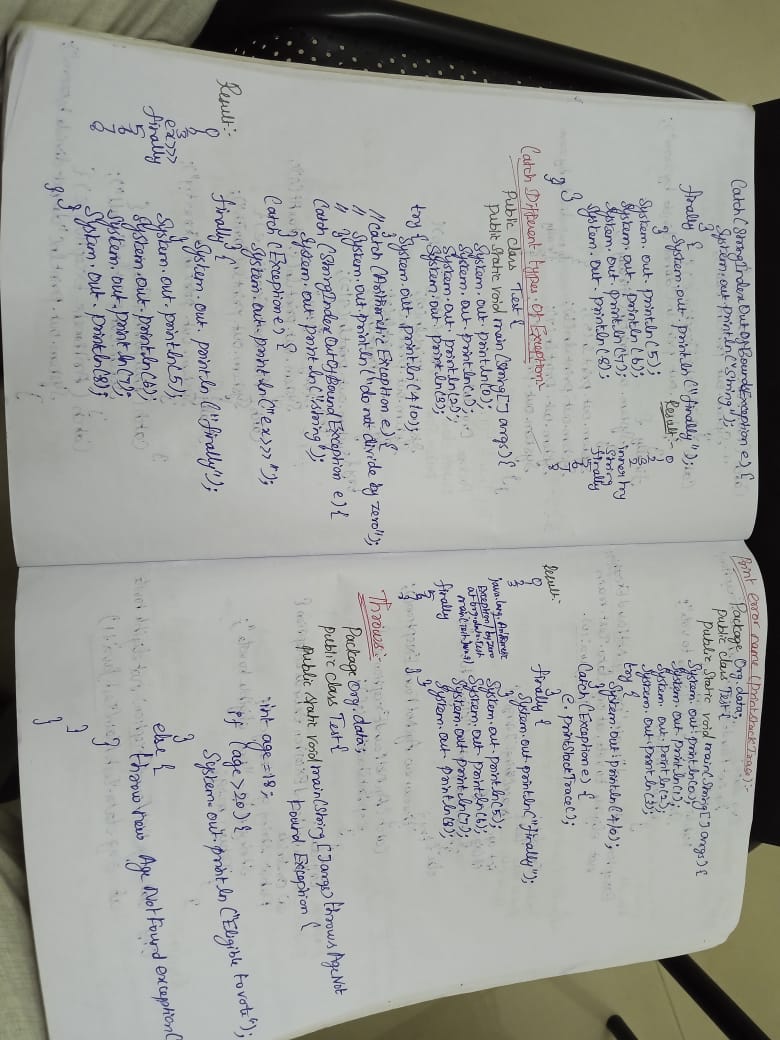 Catch (StringIndexOutOfBoundsException e) {
System.out.println("String");
}
finally {
System.out.println("finally");
}
Result:-
0
1
2
3
2
inner try
String
finally
5
6
7
8
System.out.println(5);
System.out.println(6);
System.out.println(7);
System.out.println(8);
}
}
Catch Different types Of Exception:-
Public class Test {
public static void main (String[] args) {
System.out.println(0);
System.out.println(1);
System.out.println(2);
System.out.println(3);
try {
System.out.println(4/0);
}
//catch (Arithmetic Exception e) {
// System.out.println("do not divide by zero");
// }
Catch (StringIndexOutOfBound Exception e) {
System.out.println("string");
}
Catch (Exception e) {
System.out.println("ex>>>");
}
finally {
System.out.println("finally");
}
System.out.println(5);
System.out.println(6);
System.out.println(7);
System.out.println(8);
}
}
Result:-
0
1
2
3
ex>>>
finally
5
6
7
8
Print error name (PrintStackTrace):-
Package Org.data;
public class Test {
public static void main(String[] args) {
System.out.println(0);
System.out.println(1);
System.out.println(2);
System.out.println(3);
try {
System.out.println(4/0);
}
Catch (Exception e) {
e.printStackTrace();
}
finally {
System.out.println("finally");
}
System.out.println(5);
System.out.println(6);
System.out.println(7);
System.out.println(8);
}
}
Result:
0
1
2
3
java.lang.Arithmetic
Exception / by zero
at org.data.Test
finally
5
6
7
8
Throws:-
Package Org.data;
public class Test {
public static void main(String[] args) throws Age Not
Found Exception {
int age = 18;
if (age >20) {
System.out.println ("Eligible to vote");
}
else {
throw new Age Not Found exception(
}
}
}